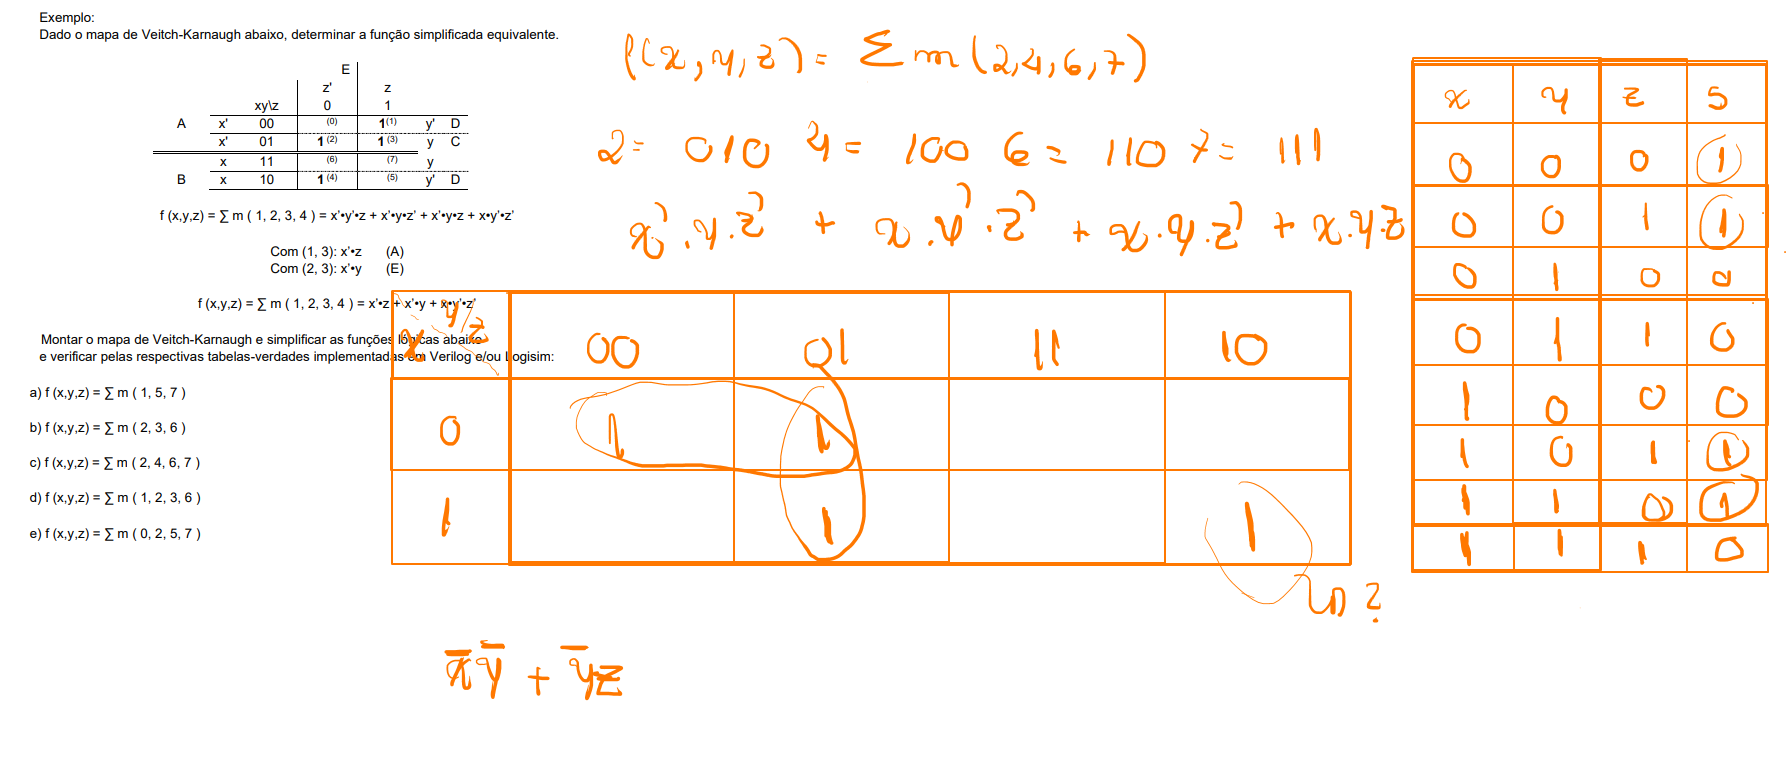 Exemplo:
Dado o mapa de Veitch-Karnaugh abaixo, determinar a função simplificada equivalente.
E
z' z
xy\z 0 1
A x' 00 (0) 1(1) y' D
x' 01 1(2) 1(3) y C
x 11 (6) (7) y
B x 10 1(4) (5) y' D
f (x,y,z) = ∑ m ( 1, 2, 3, 4 ) = x'•y'•z + x'•y•z' + x'•y•z + x•y'•z'
Com (1, 3): x'•z (A)
Com (2, 3): x'•y (E)
f (x,y,z) = ∑ m ( 1, 2, 3, 4 ) = x'•z + x'•y + x•y'•z'
Montar o mapa de Veitch-Karnaugh e simplificar as funções lógicas abaixo
e verificar pelas respectivas tabelas-verdades implementadas em Verilog e/ou Logisim:
a) f (x,y,z) = ∑ m ( 1, 5, 7 )
b) f (x,y,z) = ∑ m ( 2, 3, 6 )
c) f (x,y,z) = ∑ m ( 2, 4, 6, 7 )
d) f (x,y,z) = ∑ m ( 1, 2, 3, 6 )
e) f (x,y,z) = ∑ m ( 0, 2, 5, 7 )
f(x,y,z) = Σ m (2,4,6,7)
2= 010 4= 100 6= 110 7= 111
x'.y.z' + x.y'.z' + x.y.z' + x.y.z
x y/z 00 01 11 10
0 1 1
1 1 1
?
x̄ȳ + ȳz
x y z S
0 0 0 1
0 0 1 1
0 1 0 0
0 1 1 0
1 0 0 0
1 0 1 1
1 1 0 1
1 1 1 0